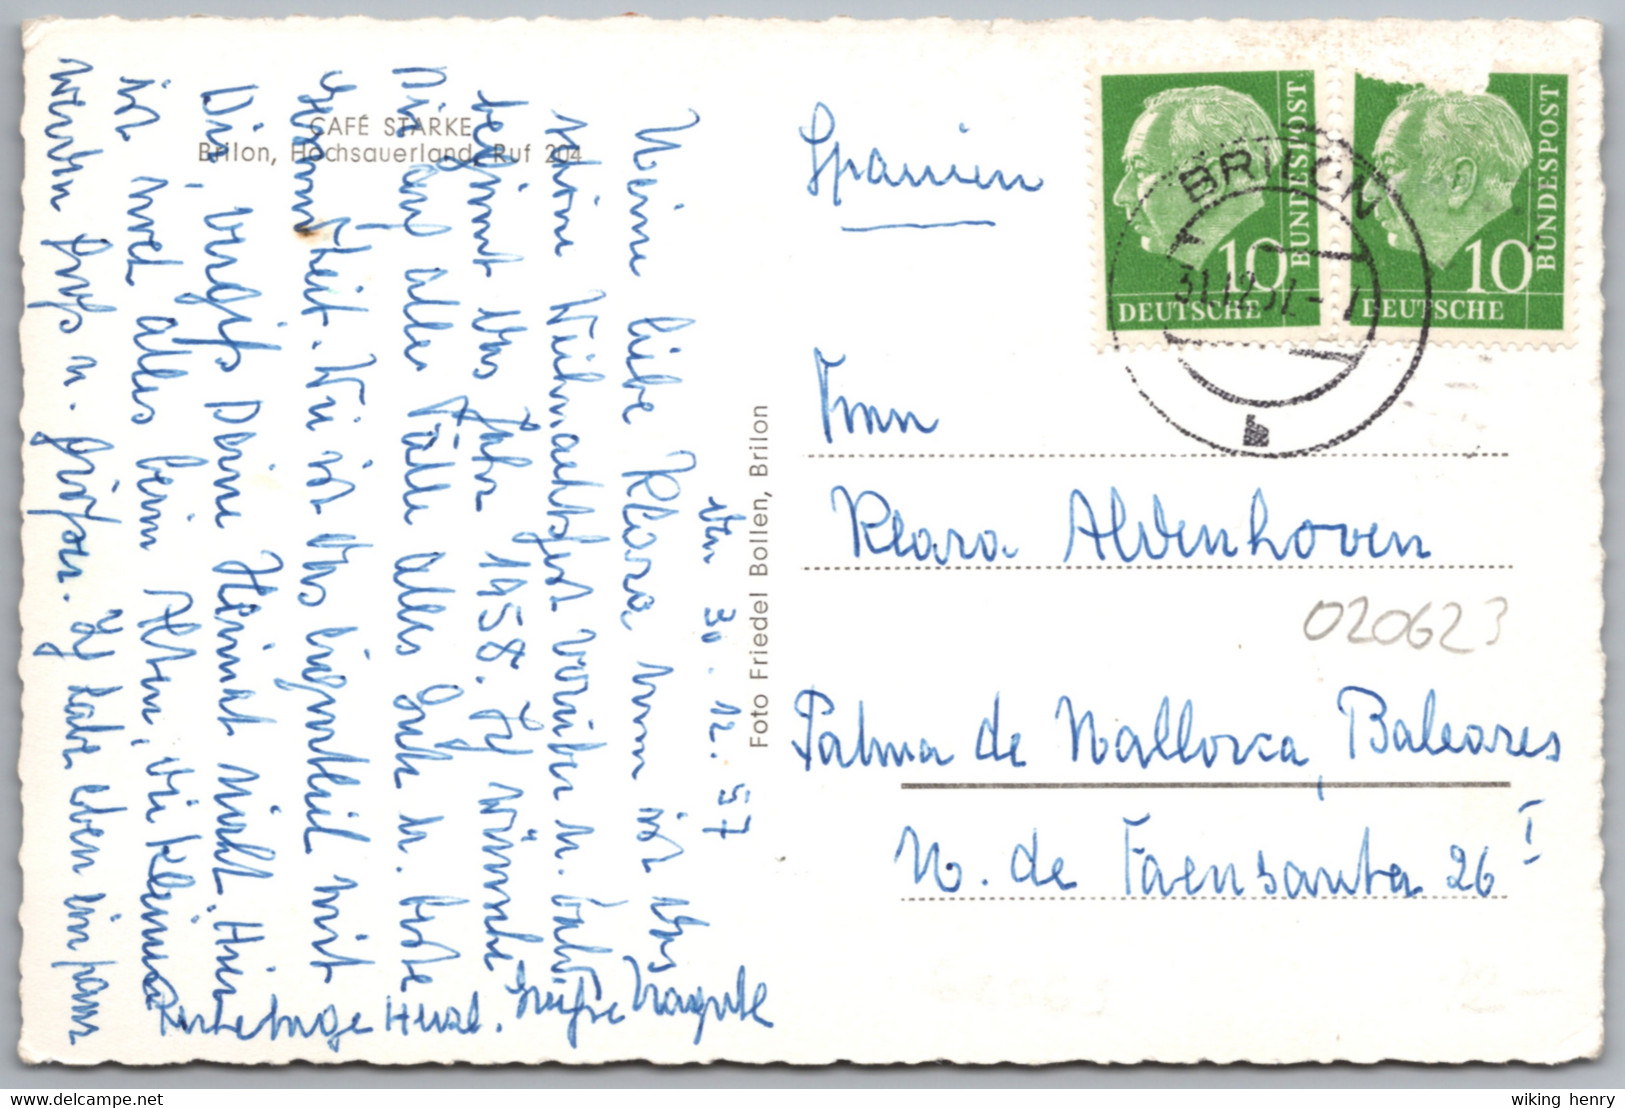 CAFÉ STARKE
Brilon, Hochsauerland, Ruf 204
den 30. 12. 57
Meine liebe Klara, nun ist das
schöne Weihnachtsfest vorüber u. bald
beginnt das Jahr 1958. Ich wünsche
Dir auf alle Fälle alles Gute u. beste
Gesundheit. Wie ist das eigentlich mit
Dir, vergiß Deine Heimat nicht. Hier
ist noch alles beim Alten, die Kleinen
werden groß u. größer. Ich habe eben ein paar
Ruhetage Grüße
Foto Friedel Bollen, Brilon
Spanien
BUNDESPOST
10
DEUTSCHE
BUNDESPOST
10
DEUTSCHE
BRILON
31.12.57
b
Frau
Klara Aldenhoven
020623
Palma de Mallorca, Baleares
N. de Faensanta 26 I
wiking henry